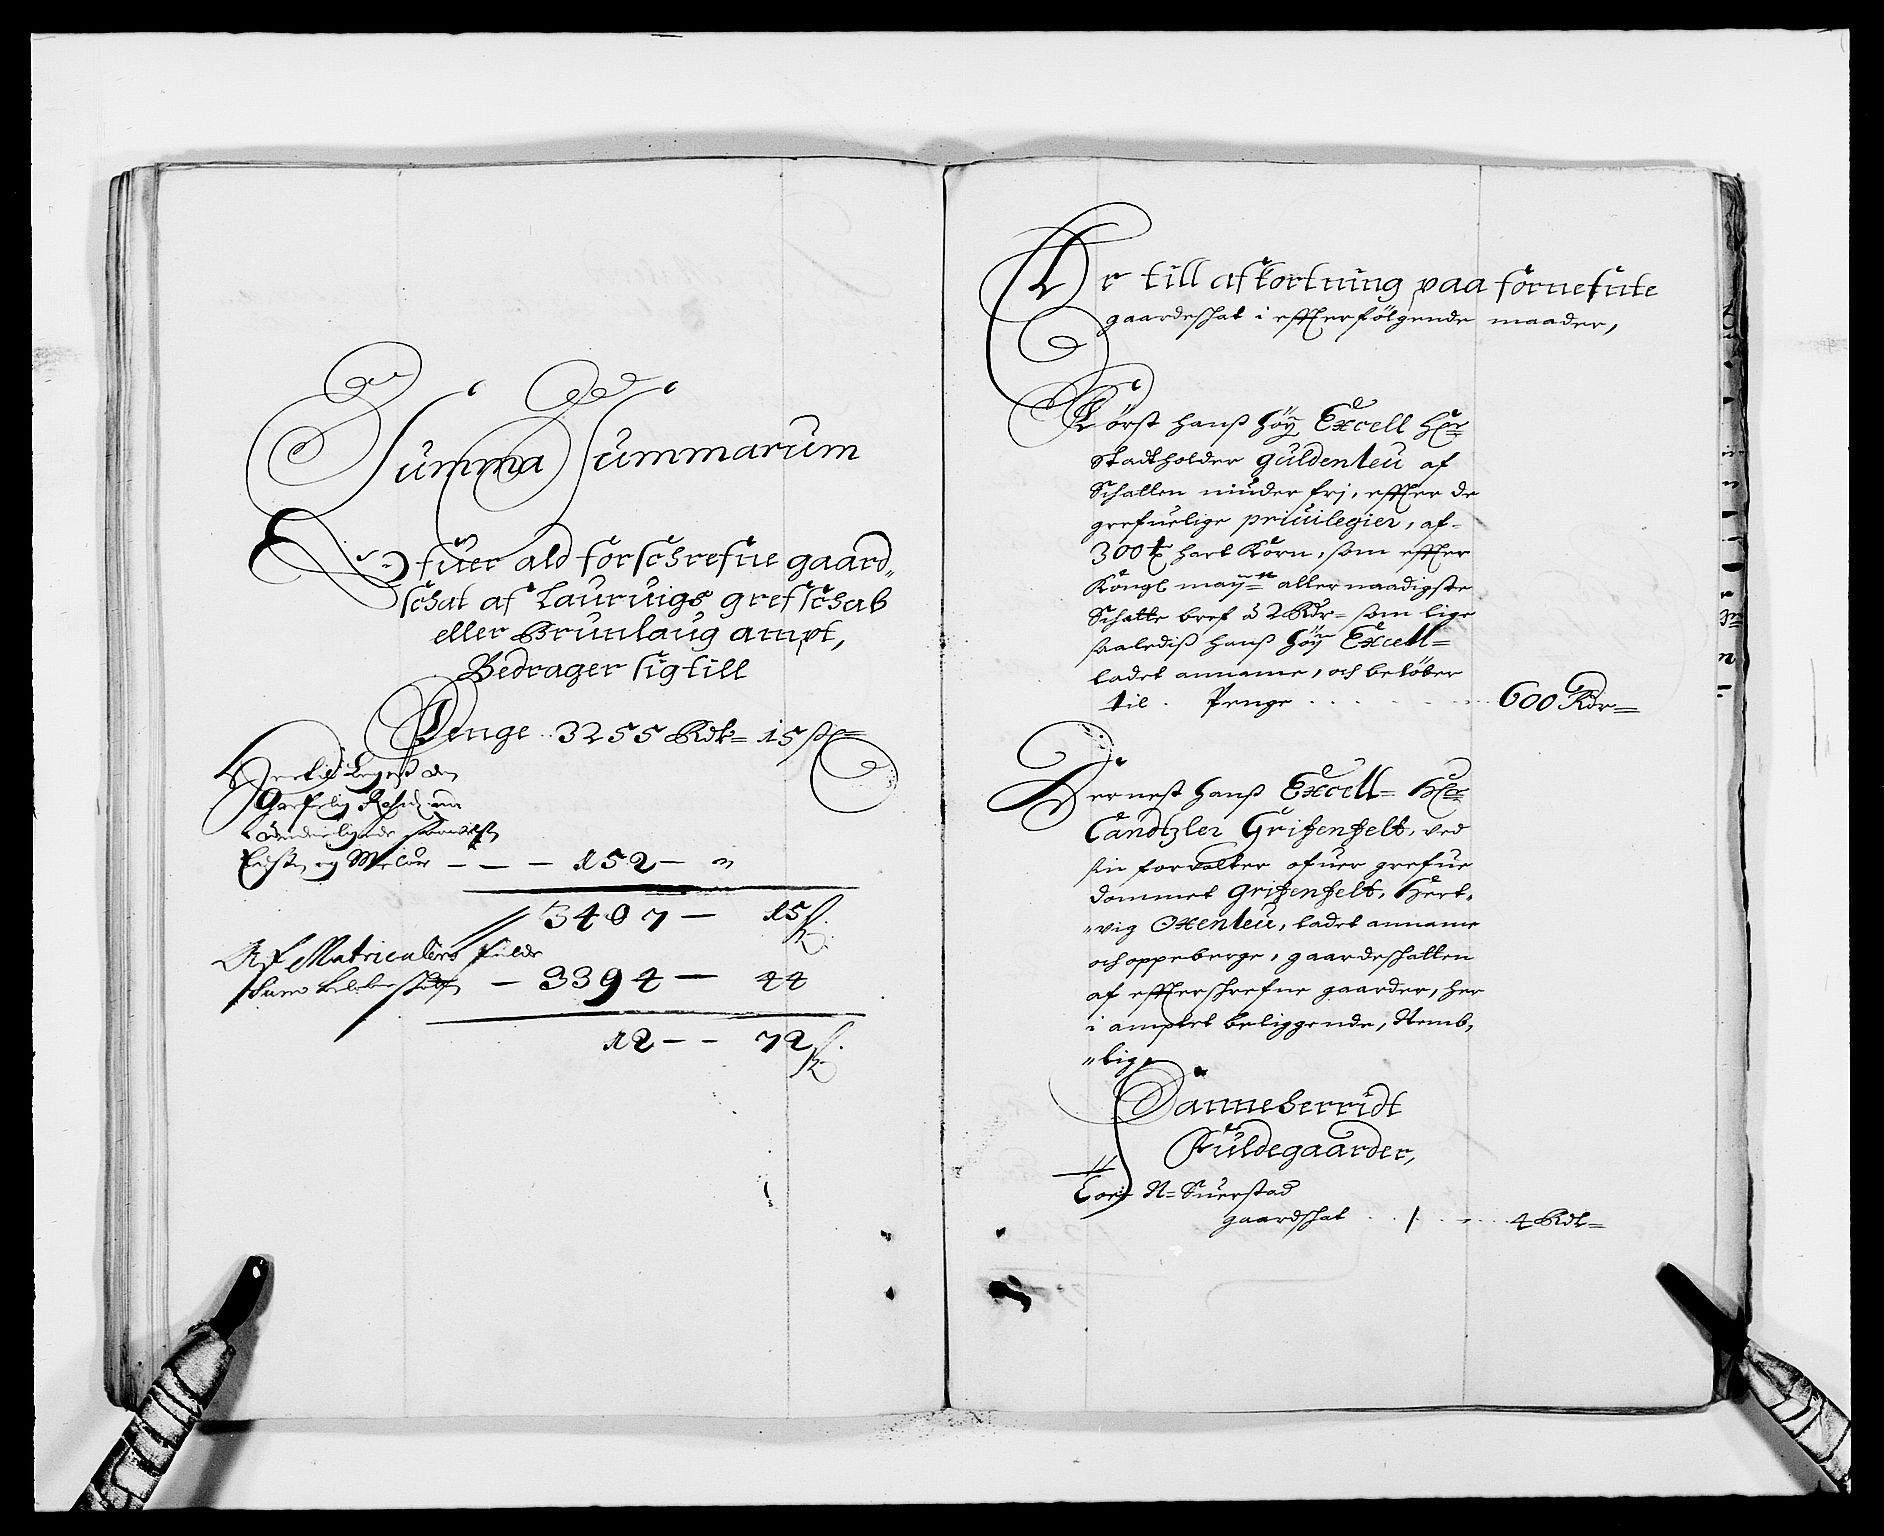 Summa Summarum
Ofuer ald forschrefne gaard„
schat af Laurvigs grefschab
eller Brunlaug ampt,
Bedrager sig till
Penge .. 3255 Rdr= 15 ß=
Her till Legges den
Grefvelig
ligende
og - - - 152 - „
3407 - 15 ß.
Af Matriculens fulde
Sum - 3394 - 44
12 - - 72 ß.
Er till afkortning paa fornefnte
gaardeschat i effterfölgende maader,
Först hanß höÿ Excell Her
Stadtholder Güldenleu af
Schatten niuder frj, effter de
grefuelige priuilegier, af-
300 t hart Korn, som effter
Kongl maÿtz aller naadigste
Schatte bref â 2 Rdr= som lige
saalediß hanß höÿ Excell=
ladet anname, och belöber
til . Penge . . . . . . 600 Rdr=
Dernest hanß Excell= Her
Cantzler Griffenfelt, ved
sin forvalter ofuer grefue
dommet Griffenfelt, Hert„
„vig Oxenleu, ladet anname
och oppeberge, gaardeschatten
af effterschrefne gaarder, her
i amptet beliggende, Nemb„
„lig,
Tanneberridt
Fuldegaarder,
N= Suerstad
gaardschat . . 1 . . . 4 Rdr=